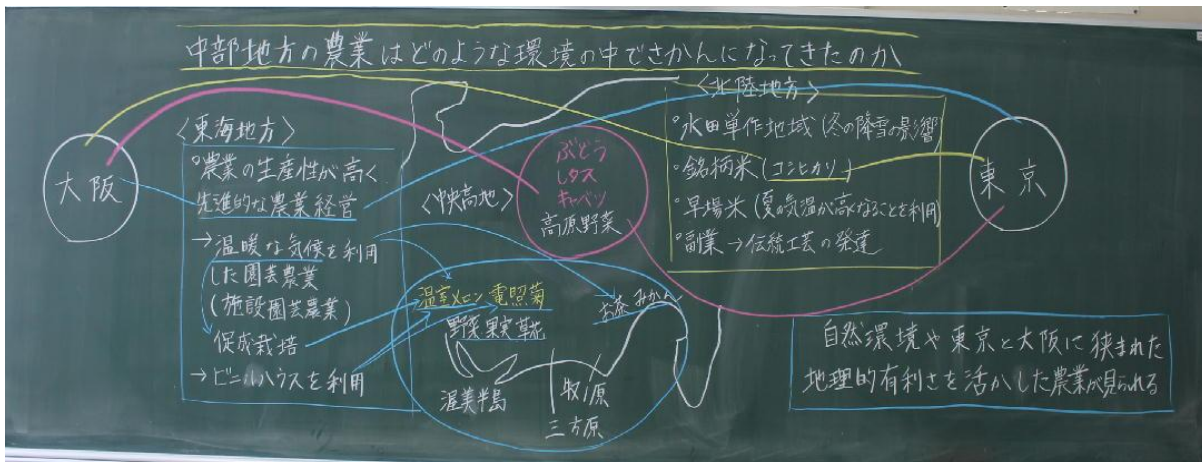 中部地方の農業はどのような環境の中でさかんになってきたのか
大阪
〈東海地方〉
°農業の生産性が高く
先進的な農業経営
→温暖な気候を利用
した園芸農業
(施設園芸農業)
促成栽培
→ビニルハウスを利用
〈中央高地〉
ぶどう
レタス
キャベツ
高原野菜
温室メロン 電照菊
野菜果実草花
お茶 みかん
渥美半島
牧ノ原
三方原
〈北陸地方〉
°水田単作地域 (冬の降雪の影響)
°銘柄米 (コシヒカリ)
°早場米 (夏の気温が高くなることを利用)
°副業→伝統工芸の発達
東京
自然環境や東京と大阪に狭まれた
地理的有利さを活かした農業が見られる